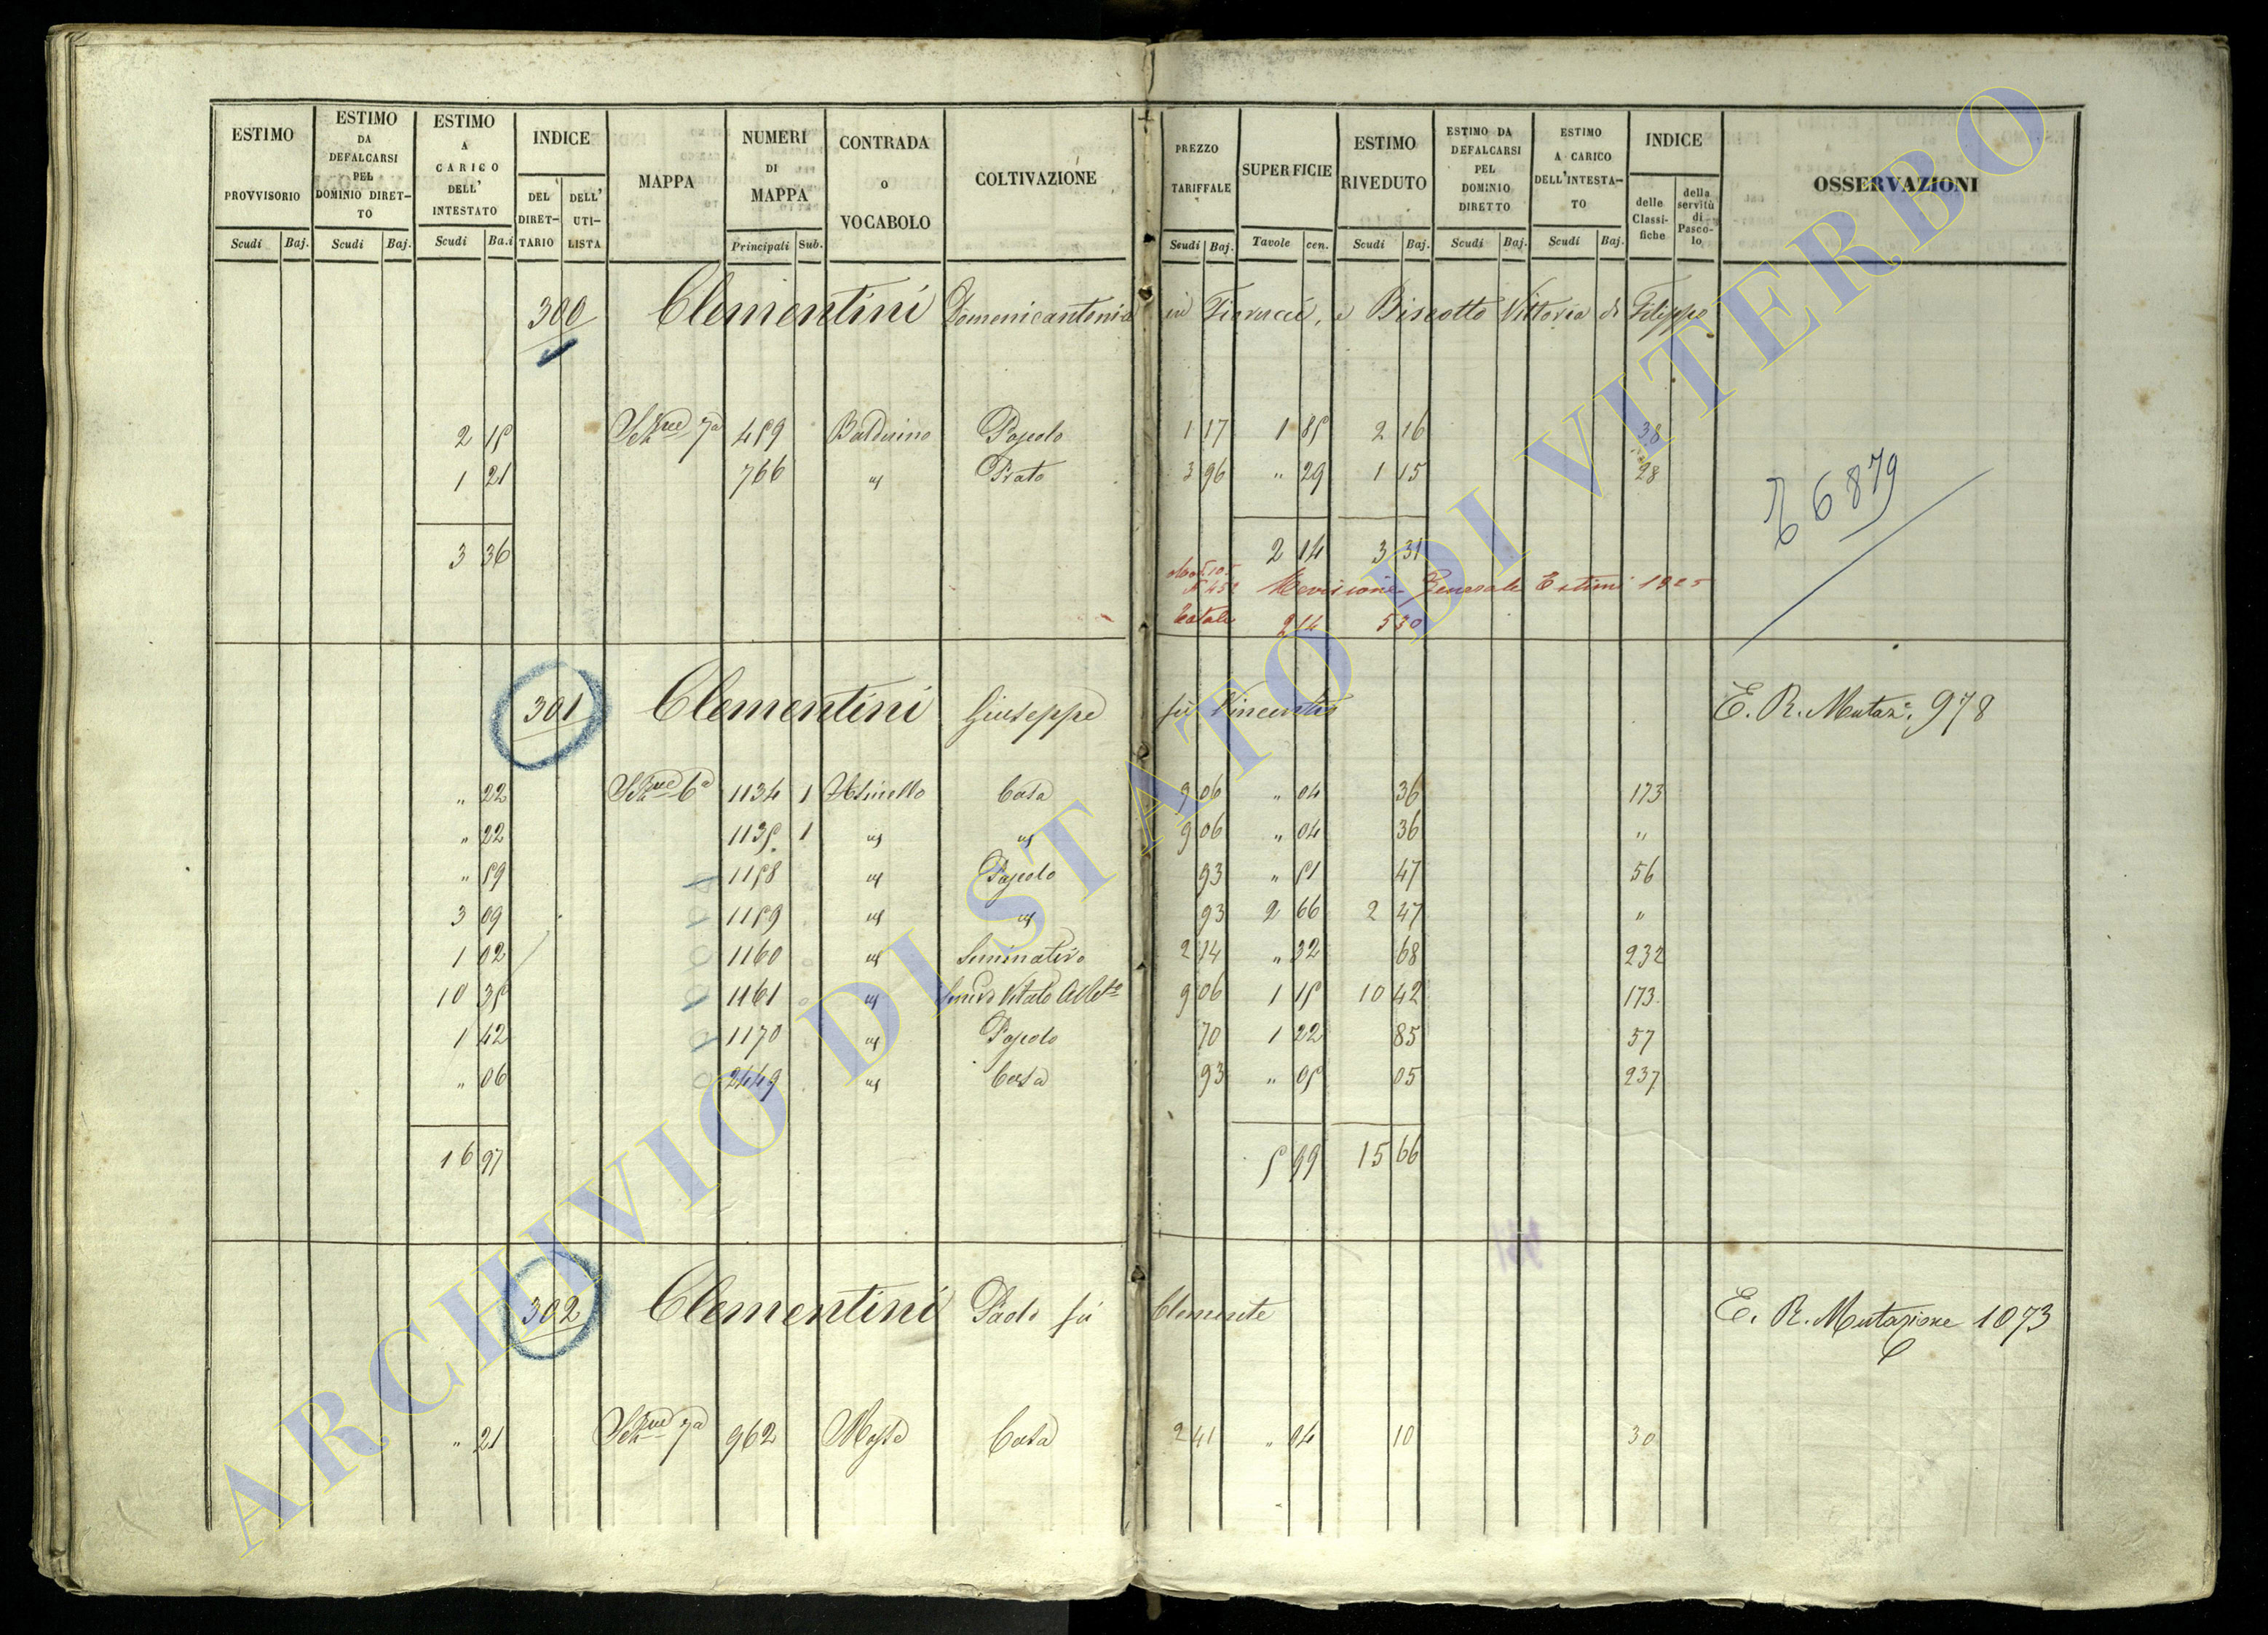 ESTIMO PROVVISORIO Scudi Baj.
ESTIMO DA DEFALCARSI PEL DOMINIO DIRETTO Scudi Baj.
ESTIMO A CARICO DELL' INTESTATO Scudi Ba.i
INDICE DEL DIRETTARIO DELL' UTILISTA
MAPPA
NUMERI DI MAPPA Principali Sub.
CONTRADA o VOCABOLO
COLTIVAZIONE
PREZZO TARIFFALE Scudi Baj.
SUPERFICIE Tavole cen.
ESTIMO RIVEDUTO Scudi Baj.
ESTIMO DA DEFALCARSI PEL DOMINIO DIRETTO Scudi Baj.
ESTIMO A CARICO DELL'INTESTATO Scudi Baj.
INDICE delle Classifiche della servitù di Pascolo
OSSERVAZIONI
300 Clementini Domenicantonia in Fiorucci, e Biscotto Vittoria di Filippo
2 15 7a 459 Balduino Pascolo 1 17 1 85 2 16 38
1 21 766 " Prato 3 96 " 29 1 15 28
6879
3 36 2 14 3 31
Revisione Generale Estimi 1925
Totale 2 14 5 30
301 Clementini Giuseppe fu Vincenzo E. R. Mutaz.e 978
" 22 6a 1134 1 Casa 9 06 " 04 36 173
" 22 1135 1 " " 9 06 " 04 36 "
" 59 1158 " Pascolo 93 " 51 47 56
3 09 1159 " " 93 2 66 2 47 "
1 02 1160 " Seminativo 2 14 " 32 68 232
10 35 1161 " 9 06 1 15 10 42 173
1 42 1170 " Pascolo 70 1 22 85 57
" 06 2449 " Casa 93 " 05 05 237
16 97 5 99 15 66
302 Clementini Paolo fu Clemente E. R. Mutazione 1073
" 21 7a 962 Casa 2 41 " 04 10 30
ARCHIVIO DI STATO DI VITERBO